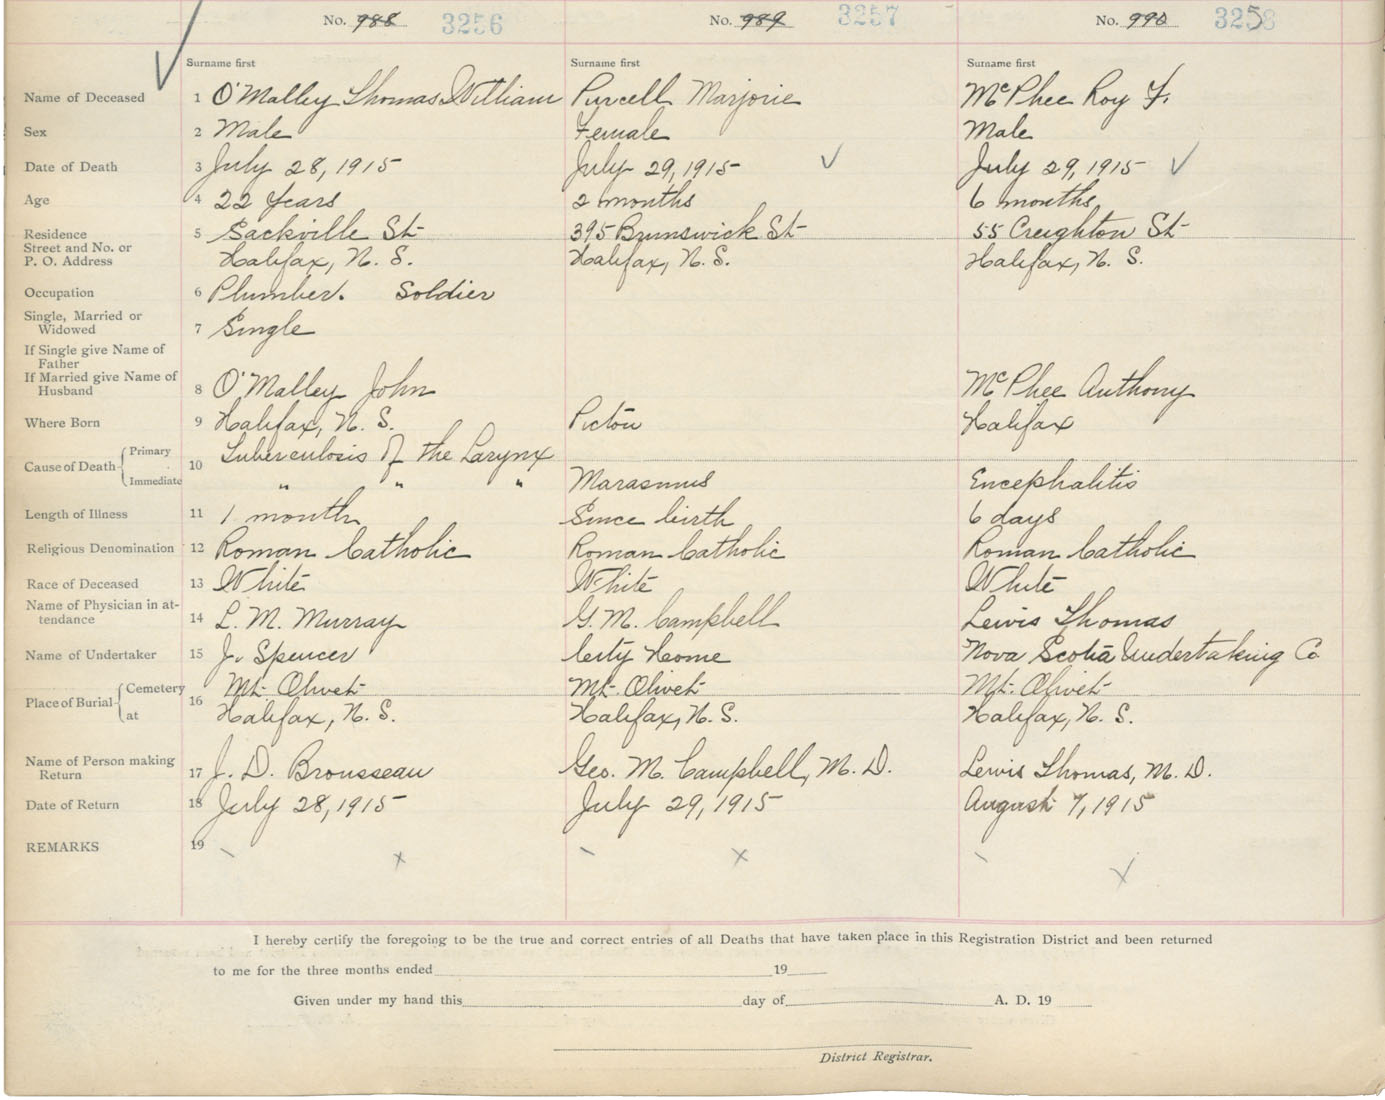 No. 988 3256 No. 989 3257 No. 990 3258
Surname first Surname first Surname first
Name of Deceased 1 O'Malley Thomas William Purcell Marjorie McPhee Roy F.
Sex 2 Male Female Male
Date of Death 3 July 28, 1915 July 29, 1915 July 29, 1915
Age 4 22 Years 2 months 6 months
Residence 5 Sackville St 395 Brunswick St 55 Creighton St
Street and No. or
P. O. Address Halifax, N. S. Halifax, N. S. Halifax, N. S.
Occupation 6 Plumber. Soldier
Single, Married or
Widowed 7 Single
If Single give Name of
Father
If Married give Name of
Husband 8 O'Malley John McPhee Anthony
Where Born 9 Halifax, N. S. Pictou Halifax
Cause of Death Primary 10 Tuberculosis of the Larynx
Immediate " " " Marasmus Encephalitis
Length of Illness 11 1 month Since birth 6 days
Religious Denomination 12 Roman Catholic Roman Catholic Roman Catholic
Race of Deceased 13 White White White
Name of Physician in at-
tendance 14 L. M. Murray G. M. Campbell Lewis Thomas
Name of Undertaker 15 J. Spencer City Home Nova Scotia Undertaking Co
Place of Burial Cemetery 16 Mt. Olivet Mt. Olivet Mt. Olivet
at Halifax, N. S. Halifax, N. S. Halifax, N. S.
Name of Person making
Return 17 J. D. Brousseau Geo. M. Campbell, M. D. Lewis Thomas, M. D.
Date of Return 18 July 28, 1915 July 29, 1915 August 7, 1915
REMARKS 19
I hereby certify the foregoing to be the true and correct entries of all Deaths that have taken place in this Registration District and been returned
to me for the three months ended 19
Given under my hand this day of A. D. 19
District Registrar.